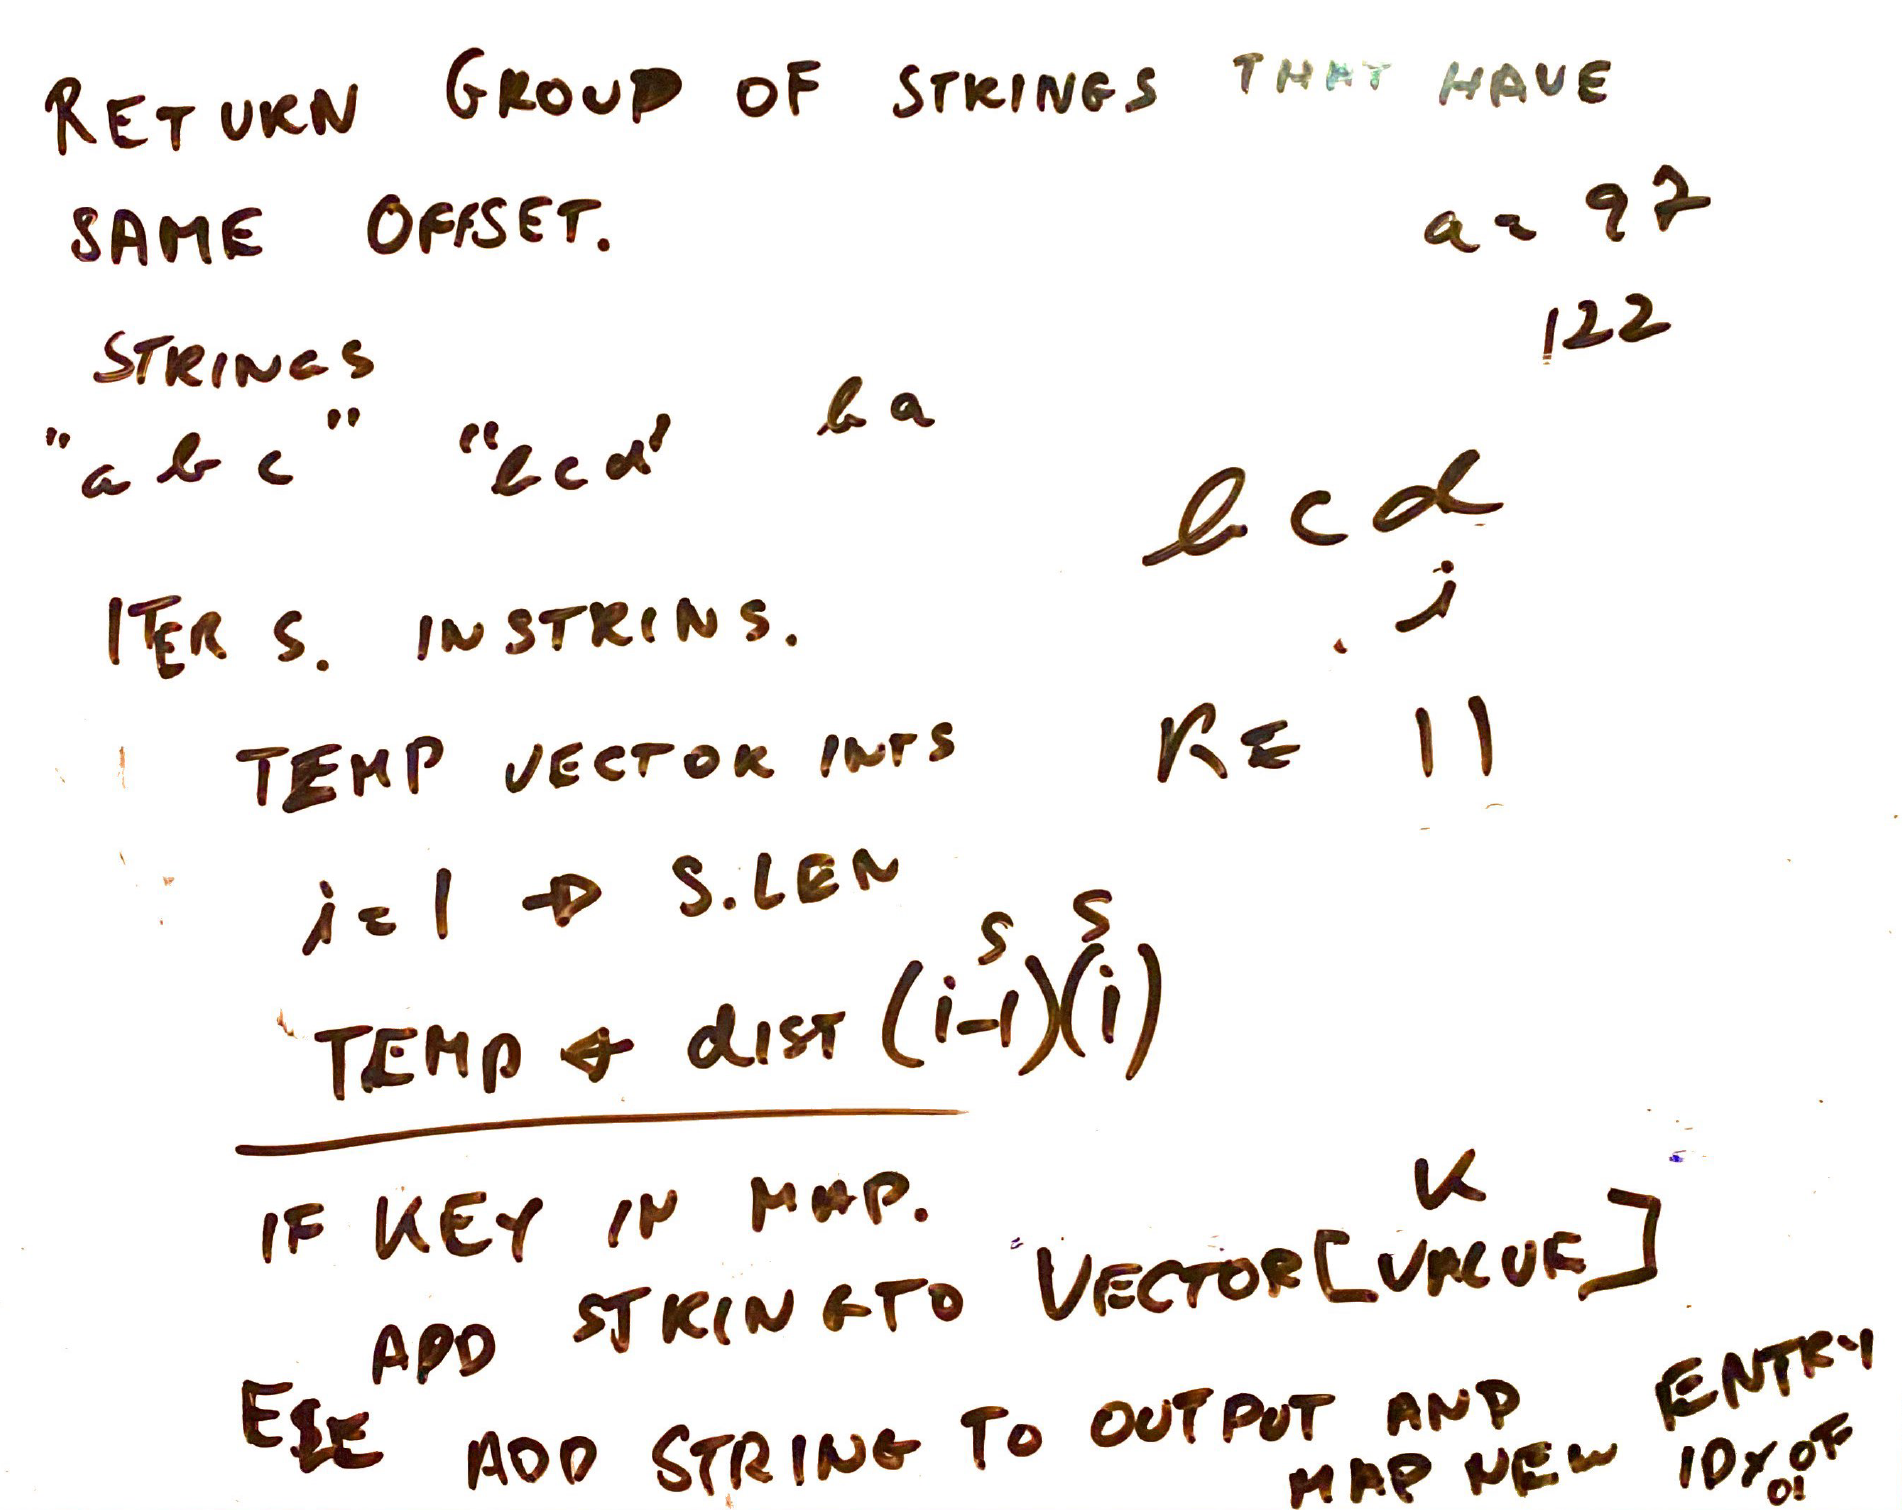 RETURN GROUP OF STRINGS THAT HAVE
SAME OFFSET.
a = 97
122
STRINGS
"abc" "bcd" ba
bcd
i
ITER S. IN STRINS.
TEMP VECTOR INTS
KE 11
i=1 → S.LEN
S S
TEMP ← dIST (i-1)(i)
IF KEY IN MAP.
K
ADD STRING TO VECTOR[VALUE]
ELSE ADD STRING TO OUTPUT AND
MAP NEW ENTRY
IDX OF